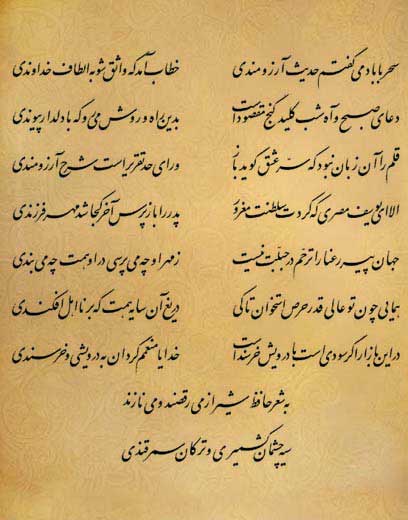 سحر با باد می گفتم حدیث آرزومندی خطاب آمد که واثق شو به الطاف خداوندی
دعای صبح و آه شب کلید گنج مقصود است بدین راه و روش می رو که با دلدار پیوندی
قلم را آن زبان نبود که سر عشق گوید باز ورای حد تقریر است شرح آرزومندی
الا ای یوسف مصری که کردت سلطنت مغرور پدر را باز پرس آخر کجا شد مهر فرزندی
جهان پیر رعنا را ترحم در جبلت نیست ز مهر او چه می پرسی در او همت چه می بندی
همایی چون تو عالی قدر حرص استخوان تا کی دریغ آن سایه همت که بر نااهل افکندی
در این بازار اگر سودی است با درویش خرسند است خدایا منعمم گردان به درویشی و خرسندی
به شعر حافظ شیراز می رقصند و می نازند
سیه چشمان کشمیری و ترکان سمرقندی